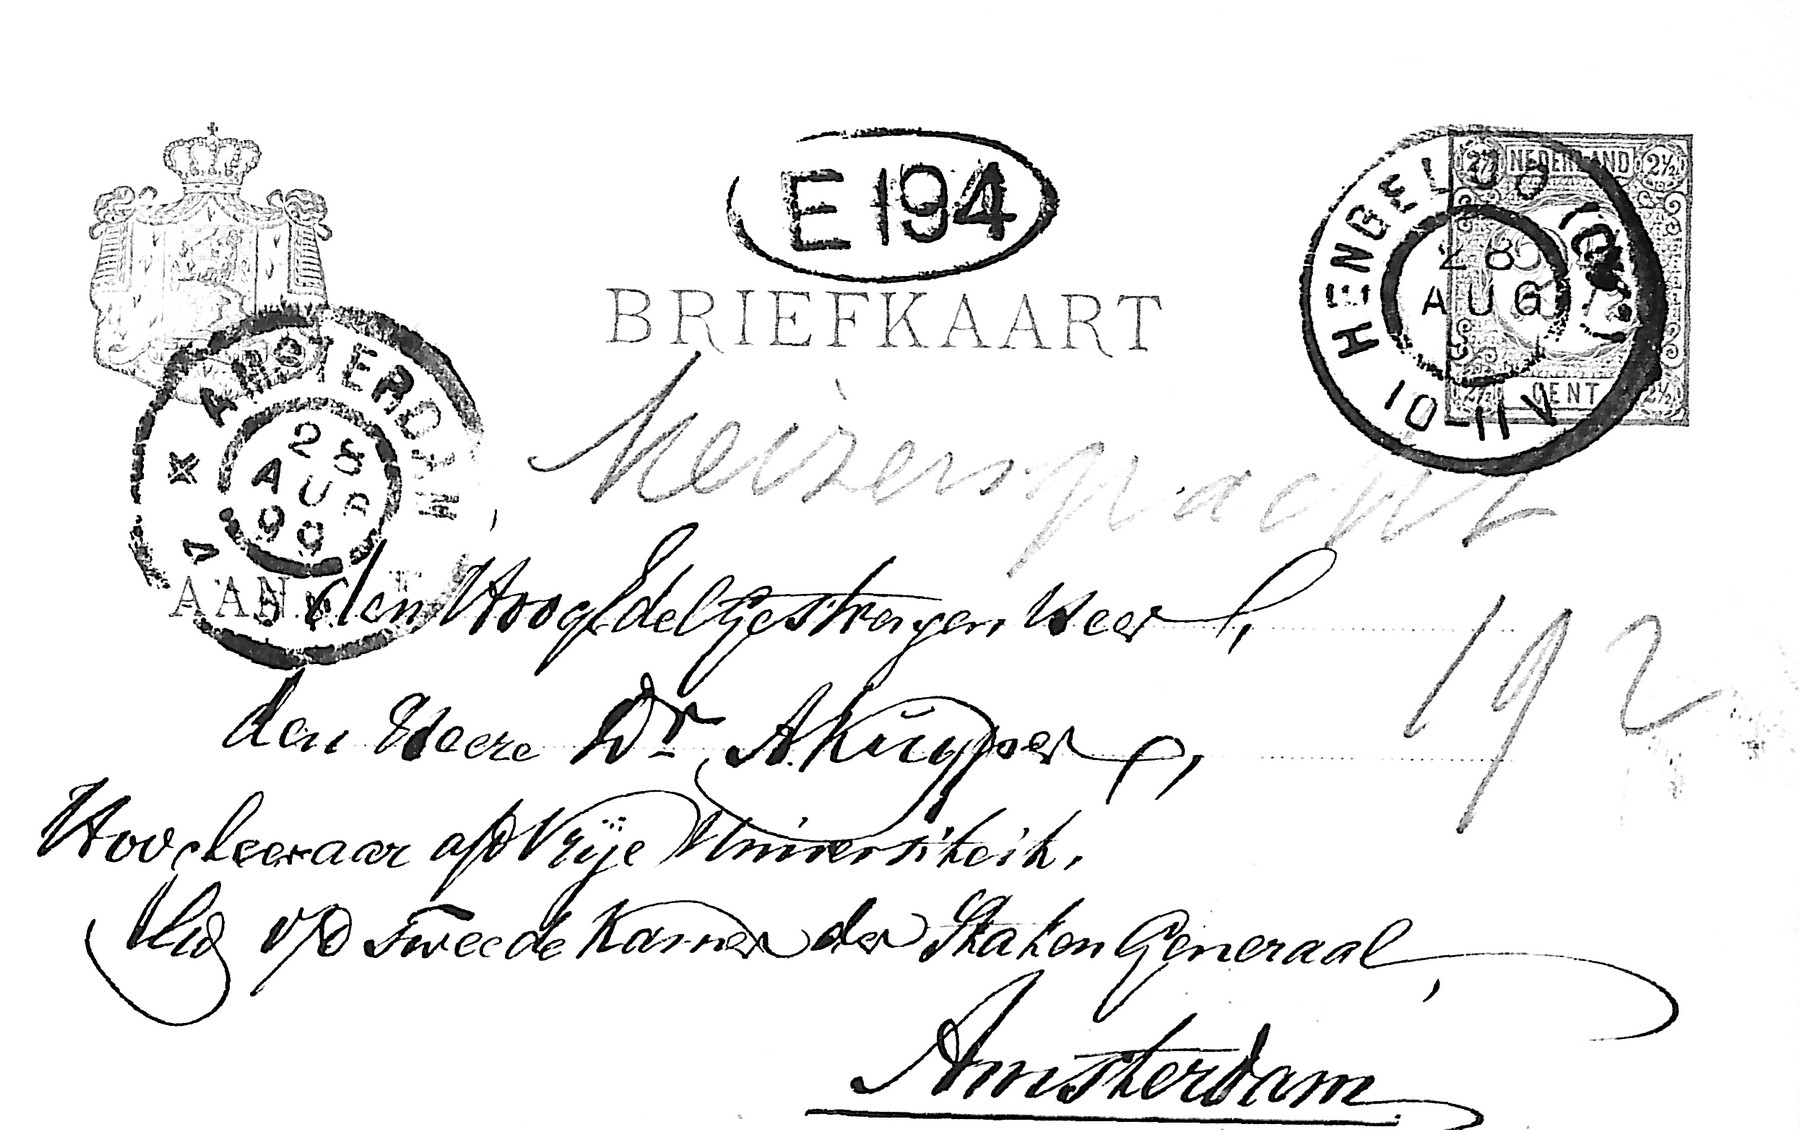 E 194
2½ NEDERLAND 2½
HENGELO (OV.)
28
AUG
10-11V
2½ CENT 2½
BRIEFKAART
AMSTERDAM
28
AUG
99
Keizersgracht
192
AAN den HoogEdelGestrengen Heer,
den Heere Dr A. Kuyper,
Hoogleeraar a/d Vrije Universiteit,
Lid v/d Tweede Kamer der Staten Generaal,
Amsterdam